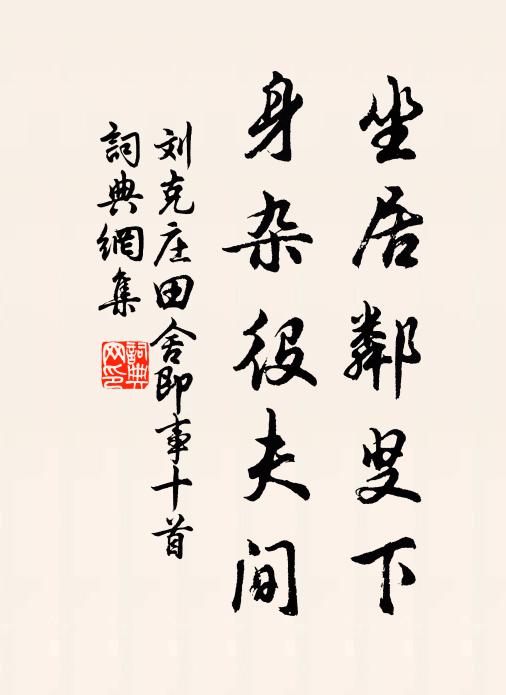 坐居鄰叟下
身杂役夫间
刘克庄田舍即事十首
詞典網集
詞典
网印